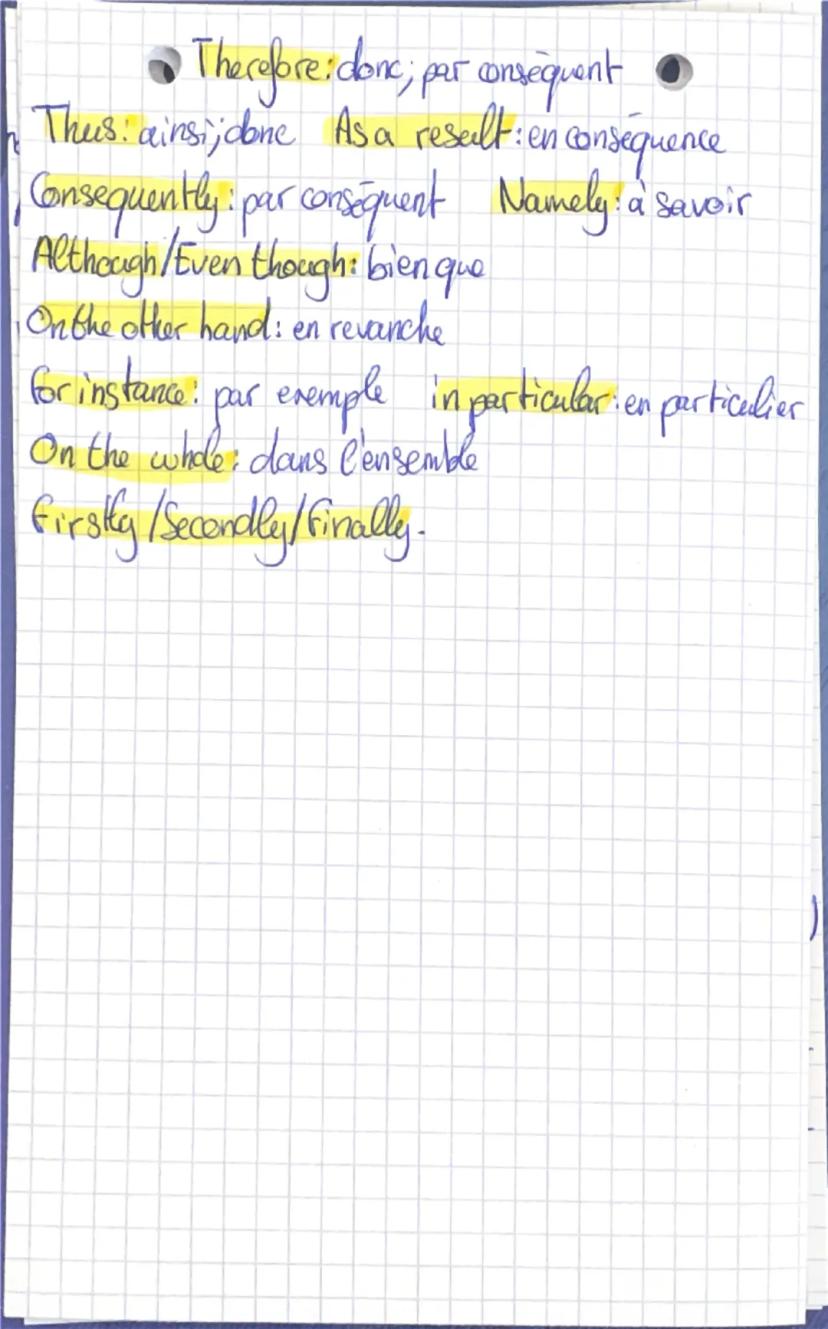 Therefore: donc; par conséquent
Thus: ainsi; donc As a result: en conséquence
Consequently: par conséquent Namely: à savoir
Although/Even though: bien que
On the other hand: en revanche
for instance: par exemple in particular: en particulier
On the whole: dans l'ensemble
firstly/Secondly/finally.